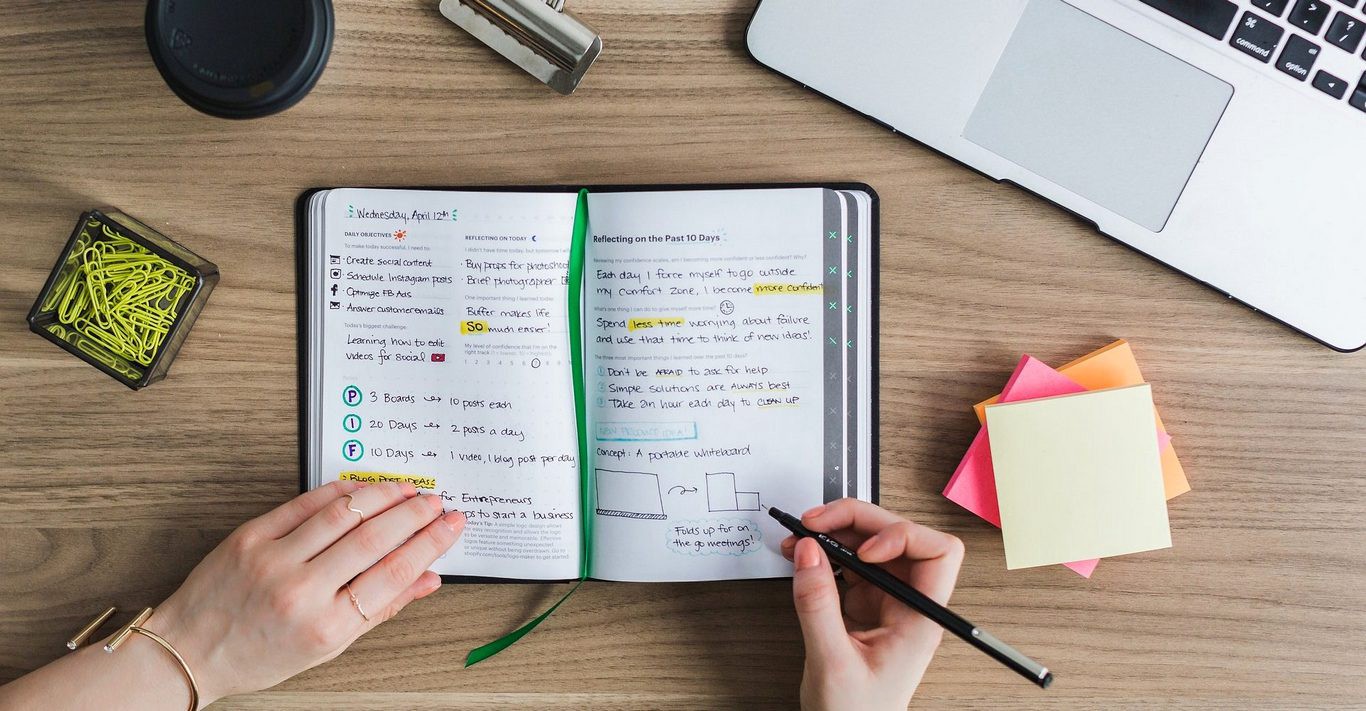 Wednesday, April 12th
DAILY OBJECTIVES
To make today successful, I need to:
· Create social content
· Schedule Instagram posts
· Optimize FB Ads
· Answer customer emails
Today's biggest challenge:
Learning how to edit
videos for social
P 3 Boards → 10 posts each
I 20 Days → 2 posts a day
F 10 Days → 1 video, 1 blog post per day
> BLOG POST IDEAS
for Entrepreneurs
to start a business
REFLECTING ON TODAY
I didn't have time today, but tomorrow I will
· Buy props for photoshoot
· Brief photographer
One important thing I learned today:
Buffer makes life
SO much easier!
My level of confidence that I'm on the
right track (1 = lowest, 10 = highest):
1 2 3 4 5 6 7 8 9 10
Today's Tip: A simple logo design allows
for easy recognition and allows the logo
to be versatile and memorable. Effective
logos feature something unexpected
or unique without being overdrawn. Go to
shopify.com/tools/logo-maker to get started.
Reflecting on the Past 10 Days
Reviewing my confidence scales, am I becoming more confident or less confident? Why?
Each day I force myself to go outside
my comfort zone, I become more confident
What's one thing I can do to give myself more time?
Spend less time worrying about failure
and use that time to think of new ideas!
The three most important things I learned over the past 10 days?
1 Don't be AFRAID to ask for help
2 Simple solutions are ALWAYS best
3 Take an hour each day to CLEAN UP
NEW PRODUCT IDEA!
Concept: A portable whiteboard
Folds up for on
the go meetings!
command
option